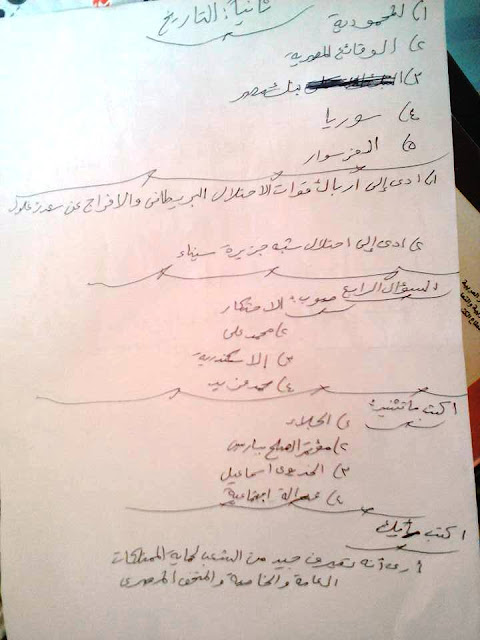 ثانيا: التاريخ
١) المحمودية
٢) الوقائع المصرية
٣) بنك مصر
٤) سوريا
٥) الفرسوار
١) ادى إلى ارباك قوات الاحتلال البريطانى والافراج عن سعد زغلول
٢) ادى إلى احتلال شبه جزيرة سيناء
السؤال الرابع
الاحتكار
٢) محمد على
٣) الاسكندرية
٤) محمد فريد
اكتب ما تشير:
١) الجلاء
٢) مؤتمر الصلح بباريس
٣) الخديوى اسماعيل
٤) عدالة اجتماعية
اكتب رأيك
أرى أنه تصرف جيد من الشعب لحماية الممتلكات
العامة والخاصة والمتحف المصرى